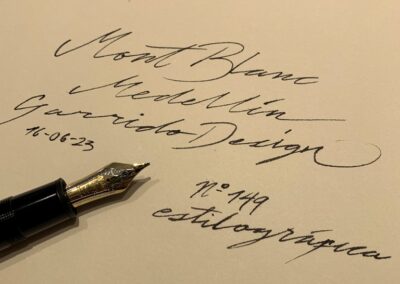 Mont Blanc
Medellín
Garrido Design
16-06-23
nº 149
estilográfica